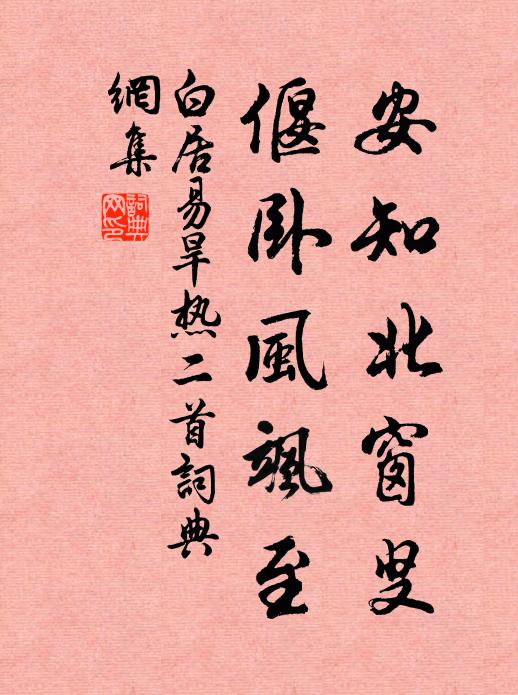 安知北窗叟
偃卧風颯至
白居易旱热二首詞典
網集
詞典网印